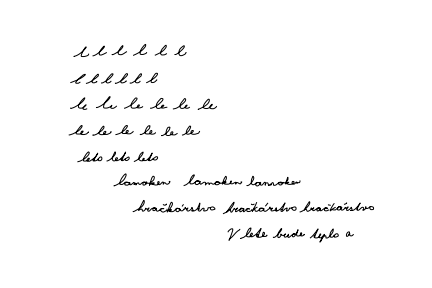 l l l l l l
l l l l l l
le le le le le le
le le le le le le
leto leto leto
hračkárstvo hračkárstvo hračkárstvo
V lete bude teplo a